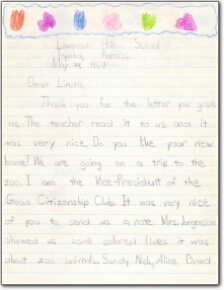 Lowman Hill School
Topeka, Kansas
May 21, 1968
Dear Linda,
Thank you for the letter you gave
us. The teacher read it to us and it
was very nice. Do you like your new
home? We are going on a trip to the
zoo. I am the Vice-President of the
Good Citizenship Club. It was very nice
of you to send us a note. Mrs. Jorgenson
showed us some colored slides it was
about zoo animals. Sandy, Nick, Alice